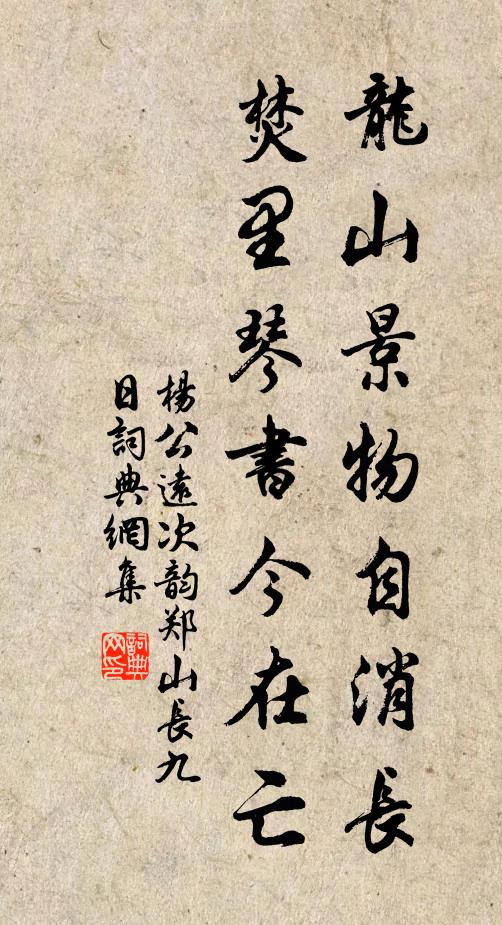 龍山景物自消長
焚里琴書今在亡
楊公遠次韵郑山長九
日詞典網集
詞典
网印